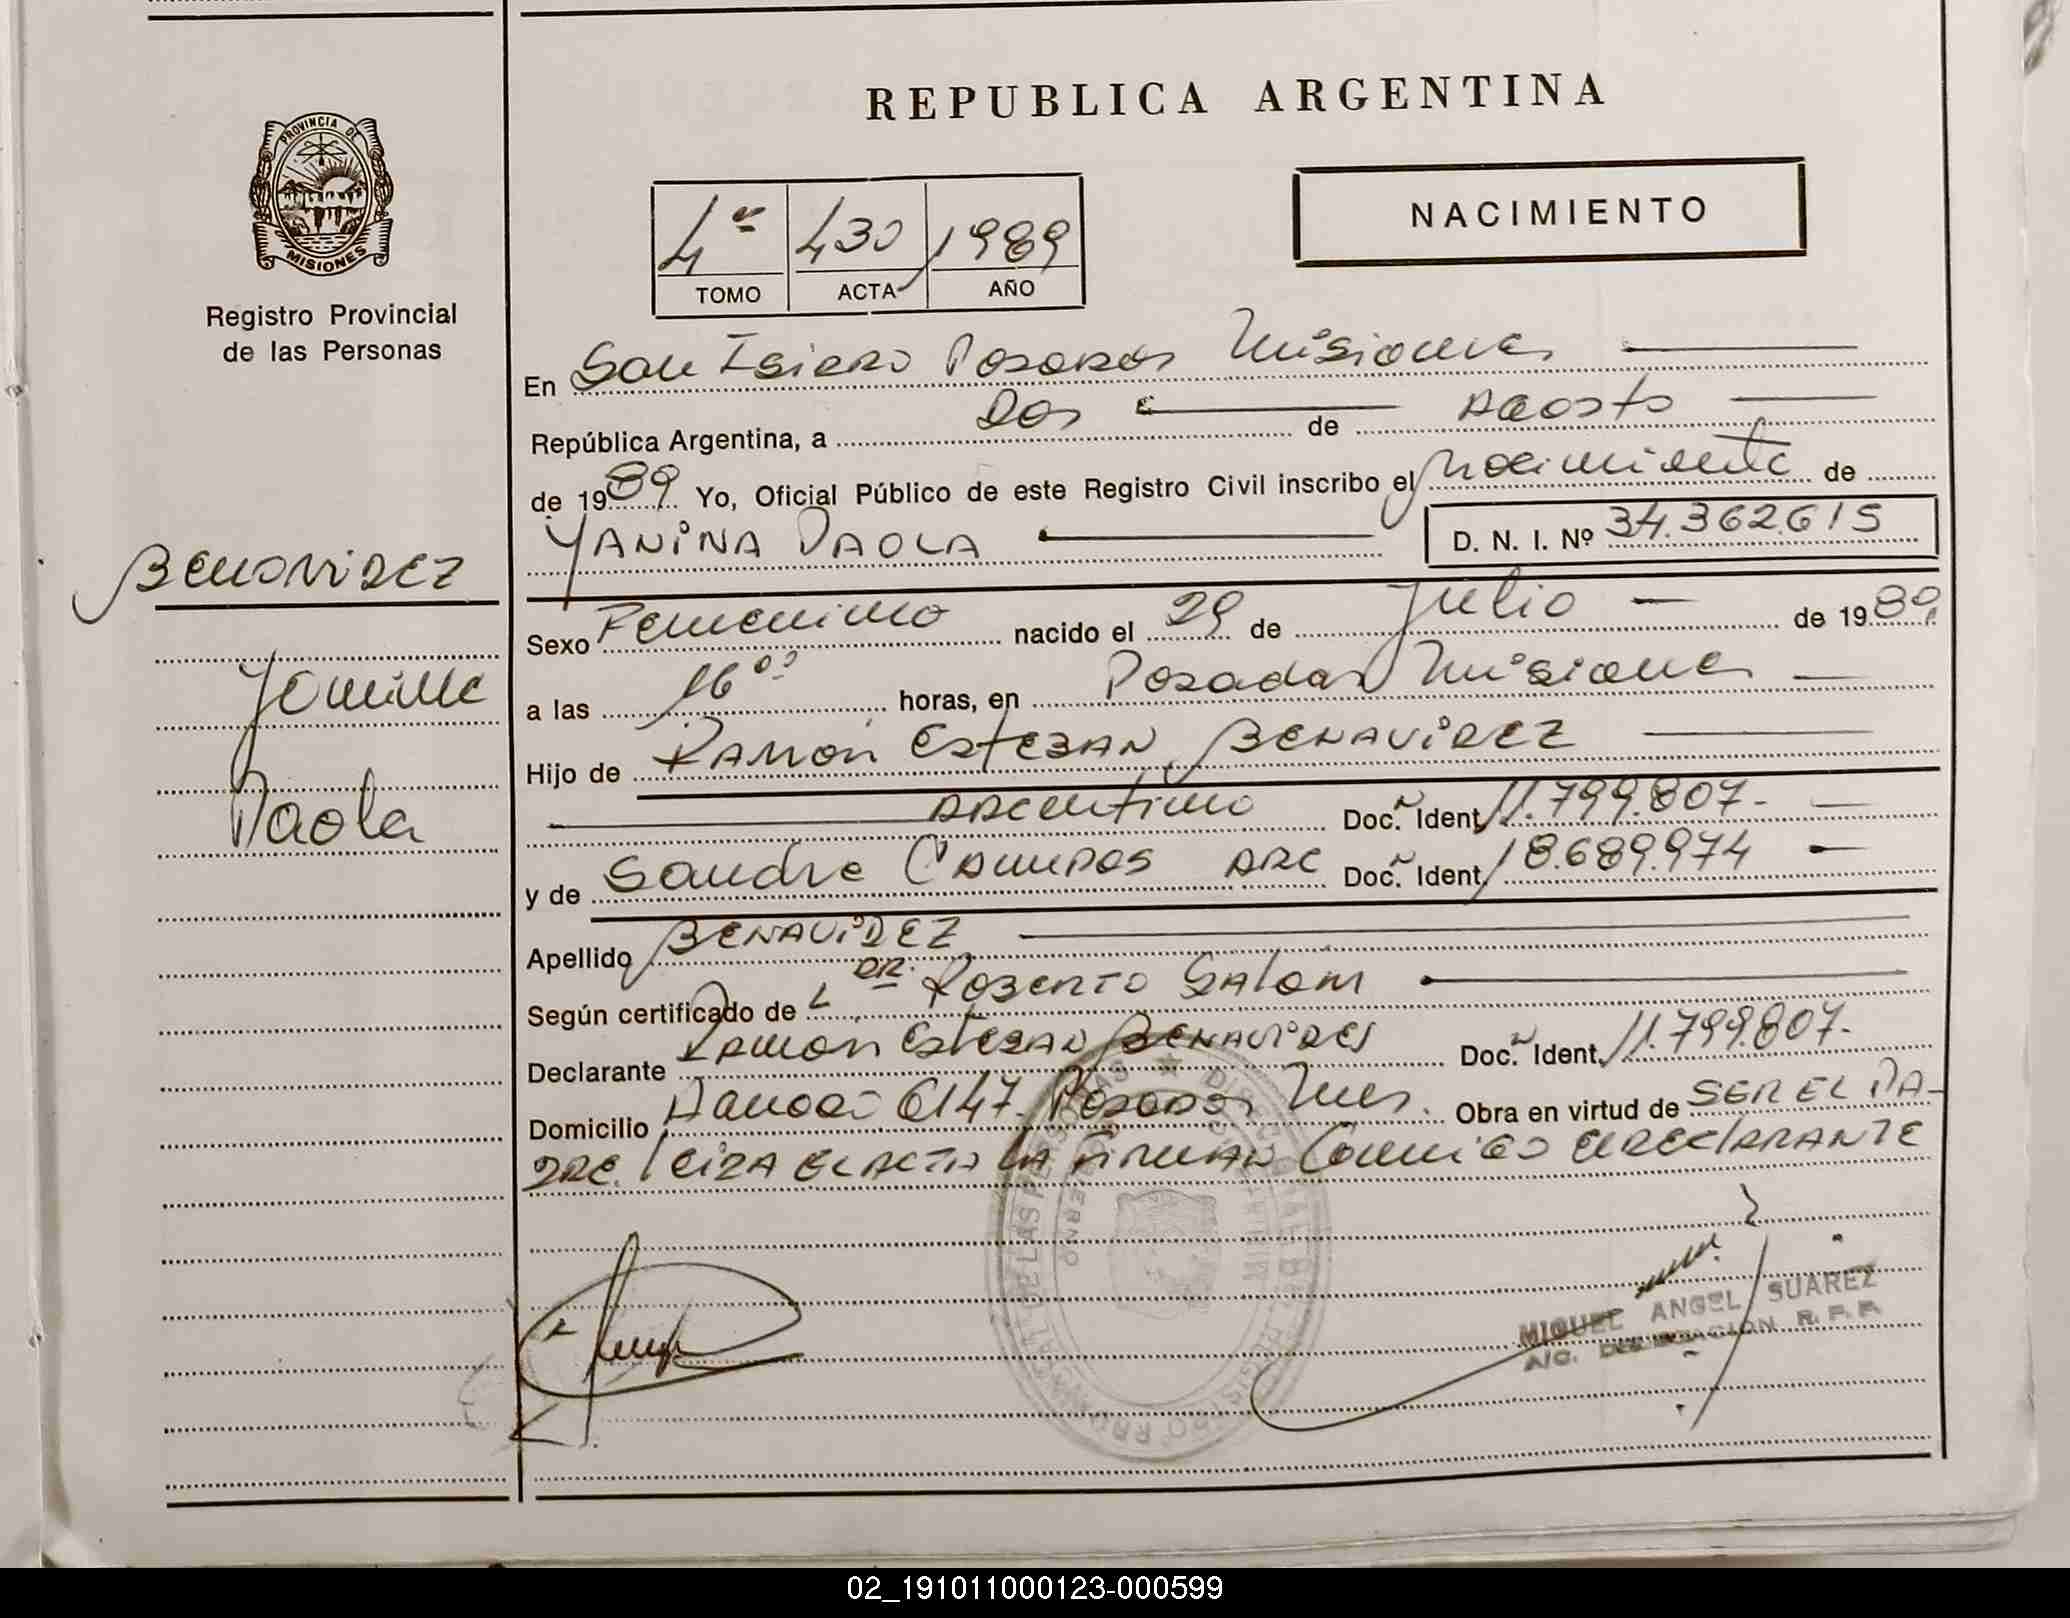 PROVINCIA DE
MISIONES
Registro Provincial
de las Personas
BENAVIDEZ
Yanina
Paola
REPUBLICA ARGENTINA
4º 430 1989
TOMO ACTA AÑO
NACIMIENTO
En San Isidro Posadas Misiones
República Argentina, a Dos de Agosto
de 1989 Yo, Oficial Público de este Registro Civil inscribo el nacimiento de
YANINA PAOLA D. N. I. Nº 34.362.615
Sexo Femenino nacido el 29 de Julio de 1989
a las 16 horas, en Posadas Misiones
Hijo de RAMON ESTEBAN BENAVIDEZ
ARGENTINO Doc. Ident. 11.799.807.-
y de Sandra CAMPOS ARG Doc. Ident. 18.689.974
Apellido BENAVIDEZ
Según certificado de DR. ROBERTO Galan
Declarante RAMON ESTEBAN BENAVIDES Doc. Ident. 11.799.807.-
Domicilio 6147. Posadas Mnes. Obra en virtud de SER EL PA-
DRE. LEIDA EL ACTA LA FIRMAN CONMIGO EL DECLARANTE
MIGUEL ANGEL SUAREZ
A/C. DELEGACION R. P. P.
02_191011000123-000599